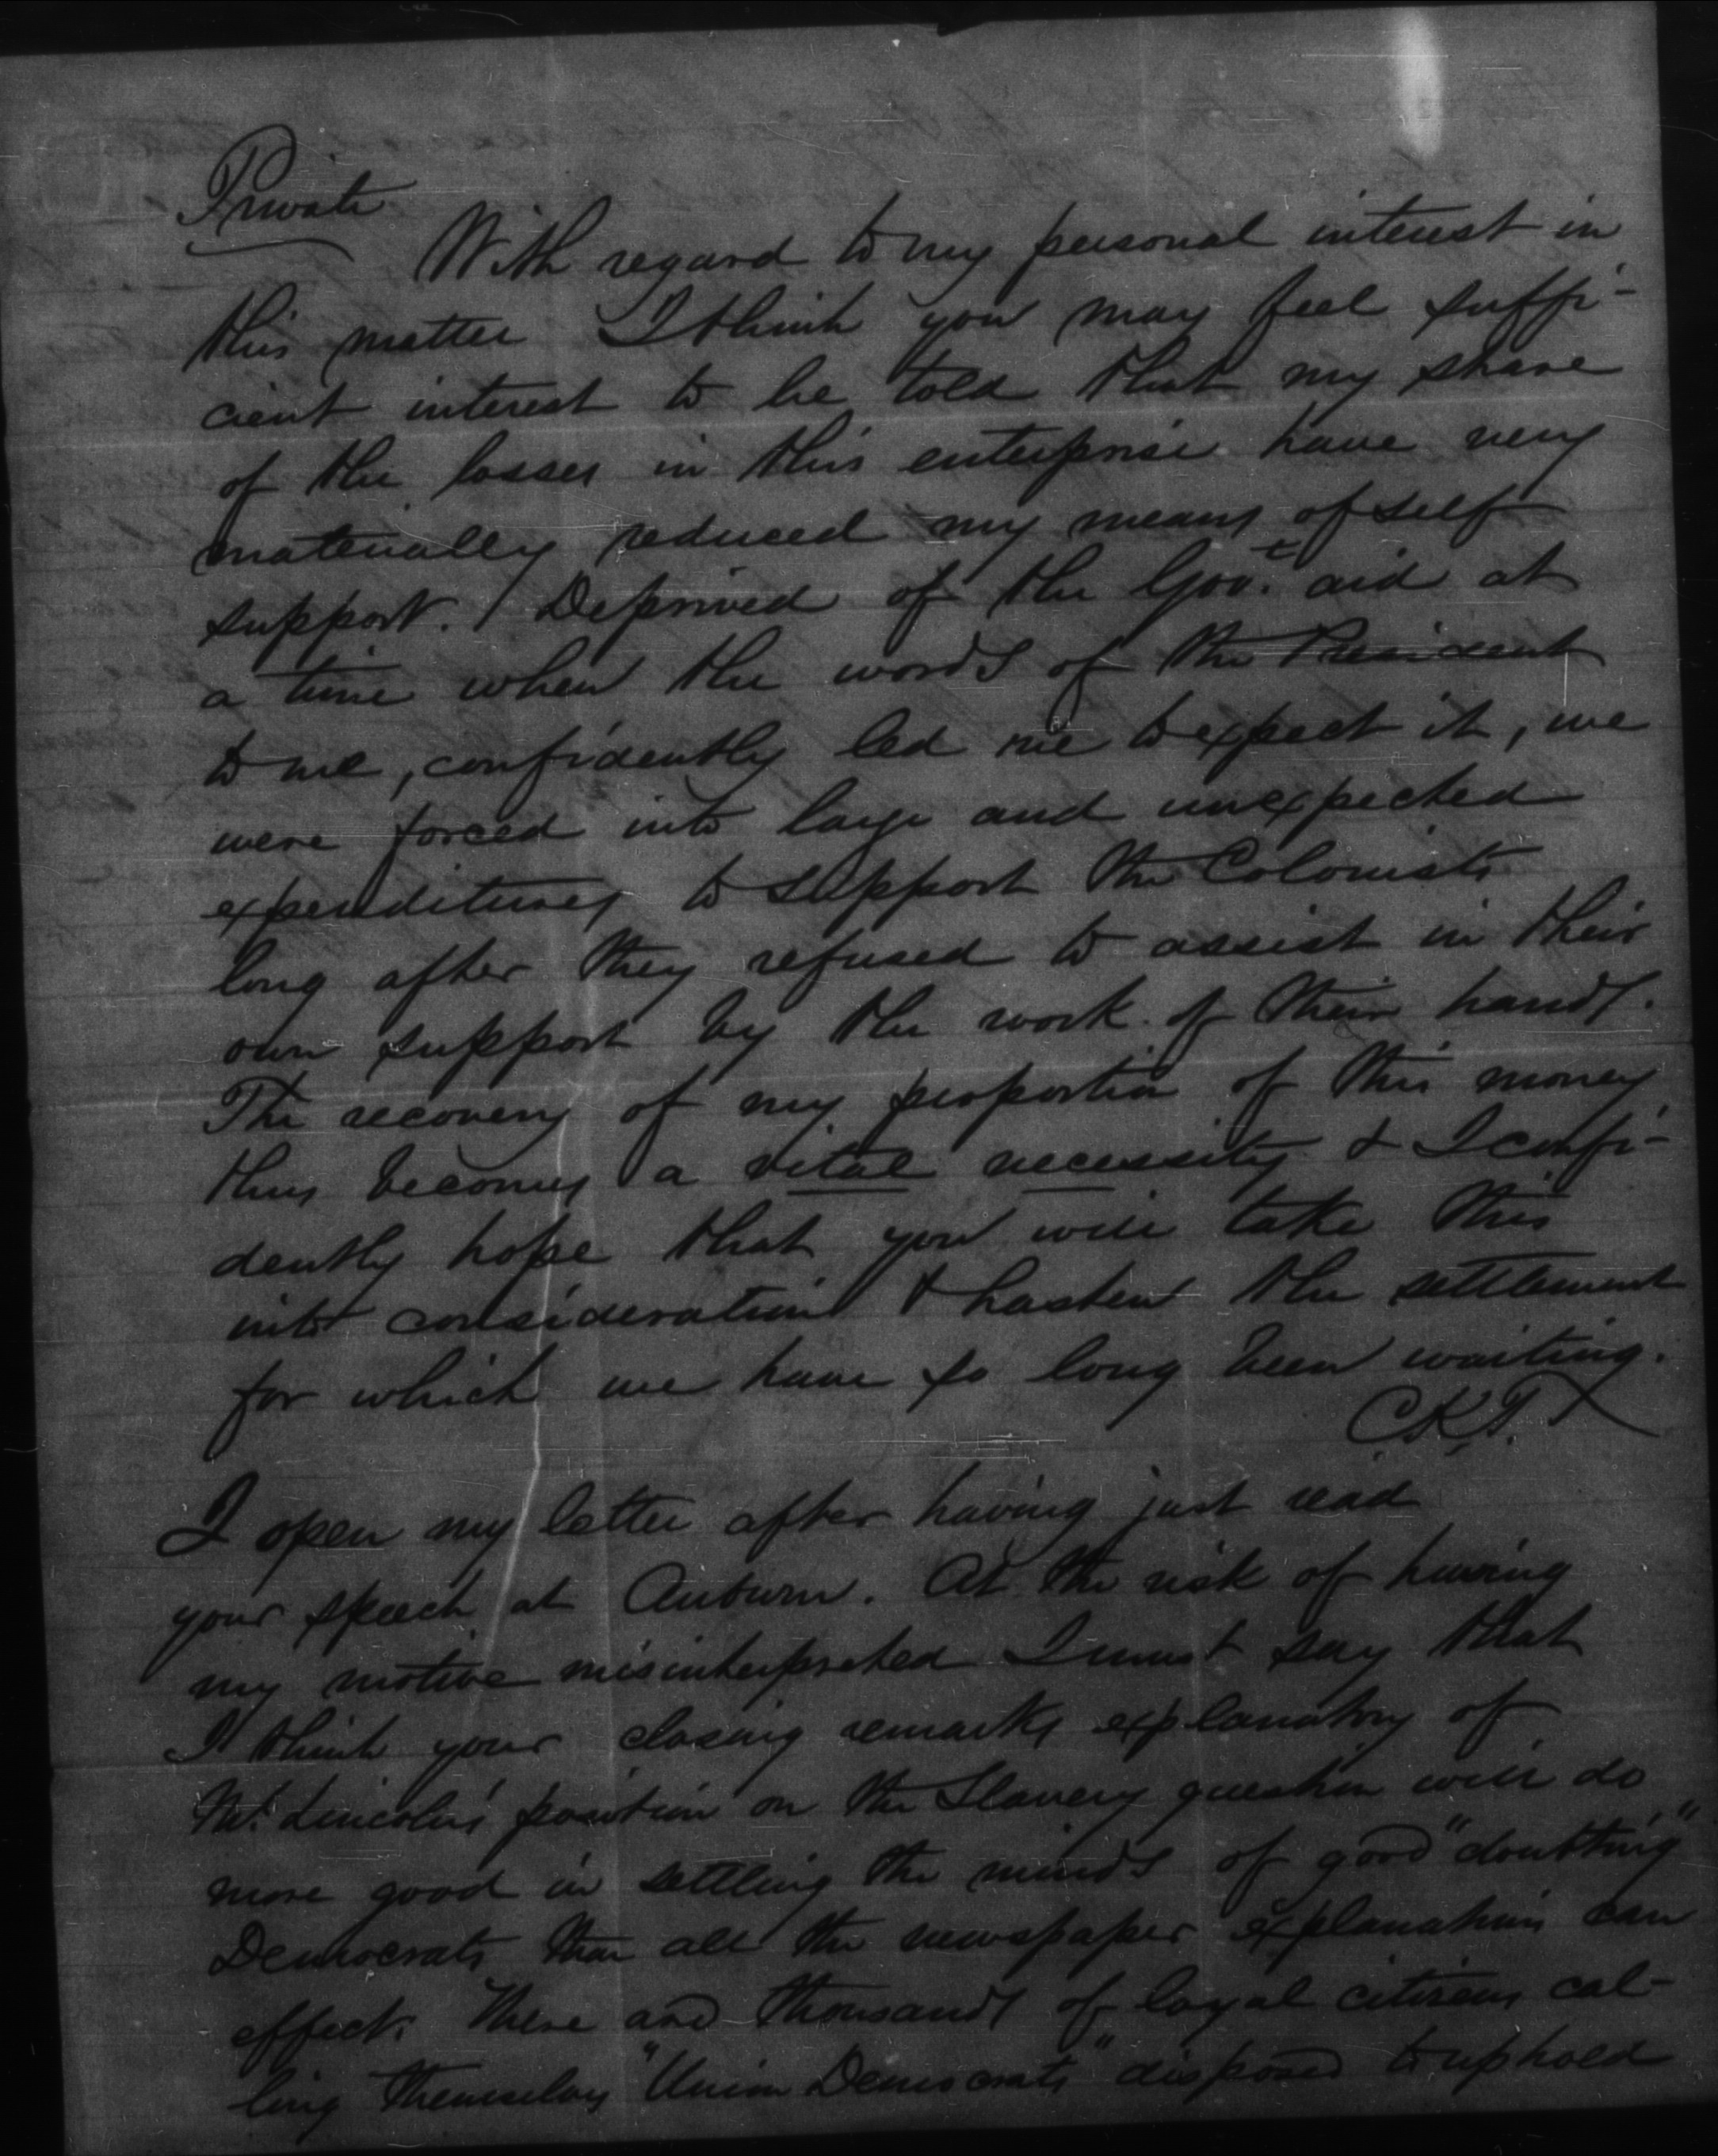 Private
With regard to my personal interest in
this matter I think you may feel suffi-
cient interest to be told that my share
of the losses in this enterprise have very
materially reduced my means of self
support. Deprived of the Gov.t aid at
a time when the words of the President
to me, confidently led me to expect it, we
were forced into large and unexpected
expenditures to support the Colonists
long after they refused to assist in their
own support by the work of their hands.
The recovery of my proportion of this money
thus becomes a vital necessity & I confi-
dently hope that you will take this
into consideration & hasten the settlement
for which we have so long been waiting.
C.K.T.
I open my letter after having just read
your speech at Auburn. At the risk of having
my motive misinterpreted I must say that
I think your closing remarks explanatory of
Mr. Lincoln's position on the Slavery question will do
more good in settling the minds of good "doubting"
Democrats than all the newspaper explanations can
effect. There are thousands of loyal citizens cal-
ling themselves "Union Democrats" disposed to uphold